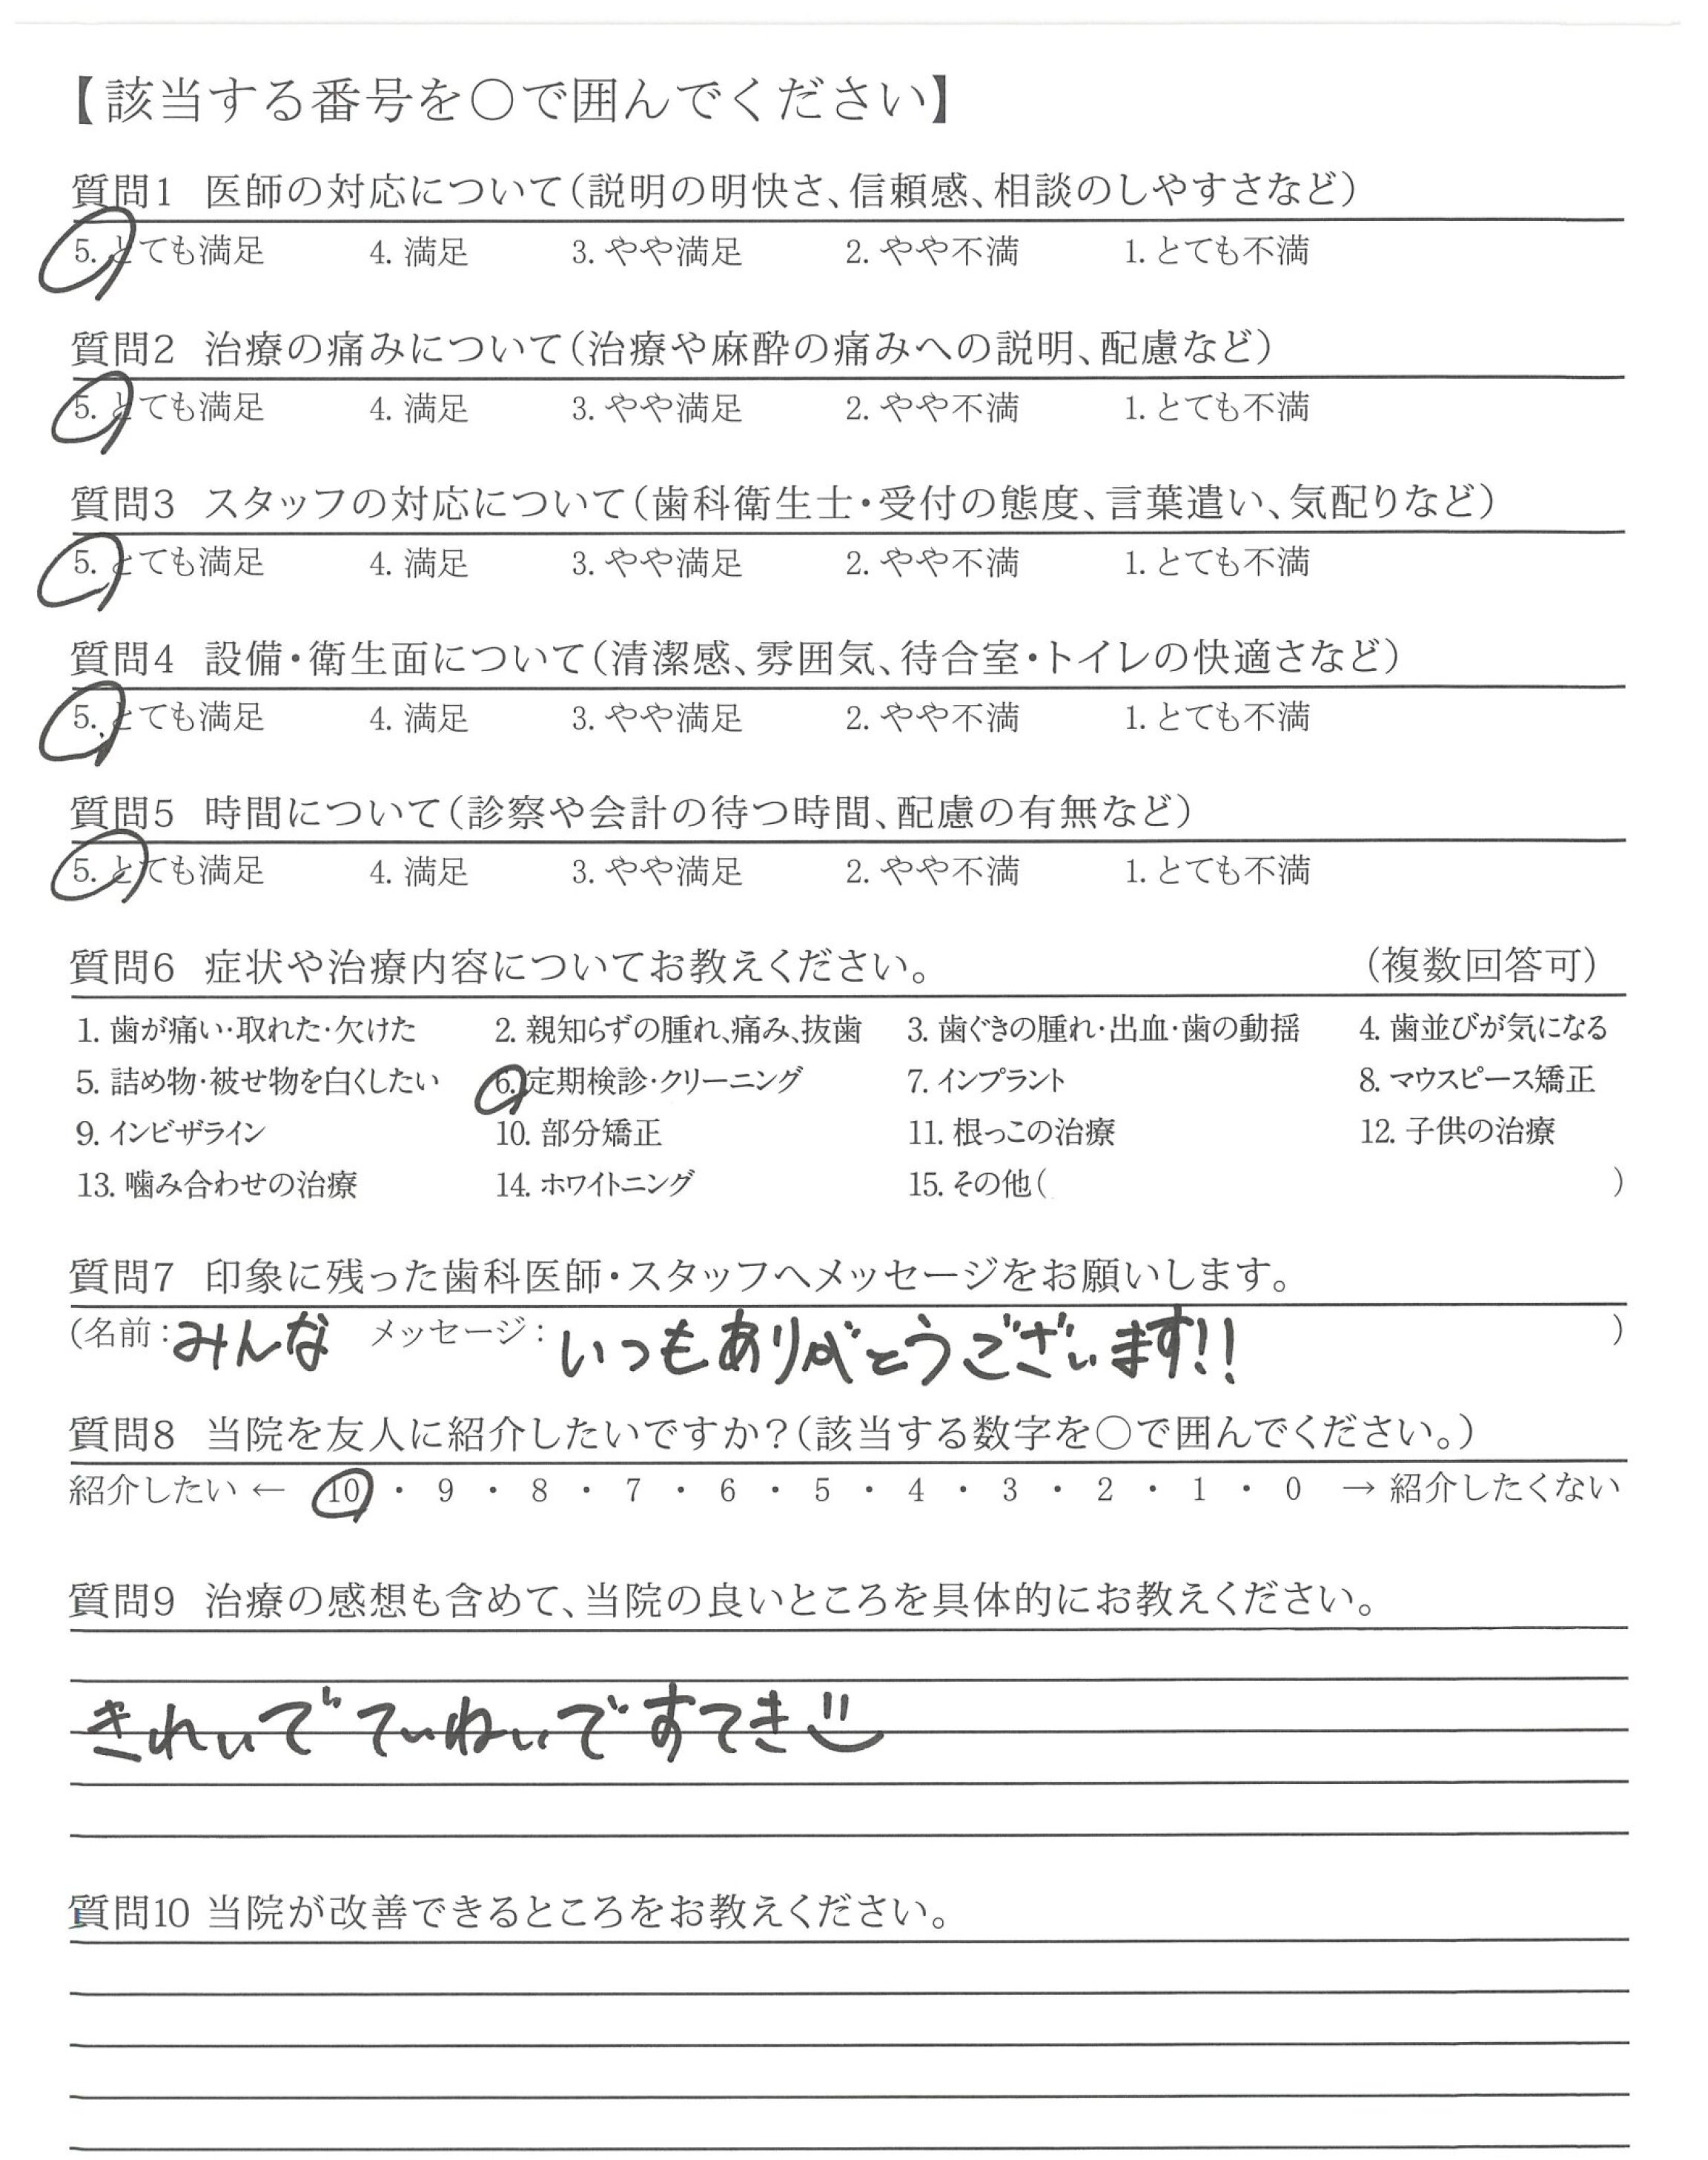 【該当する番号を〇で囲んでください】
質問1 医師の対応について（説明の明快さ、信頼感、相談のしやすさなど）
5. とても満足 4. 満足 3. やや満足 2. やや不満 1. とても不満
質問2 治療の痛みについて（治療や麻酔の痛みへの説明、配慮など）
5. とても満足 4. 満足 3. やや満足 2. やや不満 1. とても不満
質問3 スタッフの対応について（歯科衛生士・受付の態度、言葉遣い、気配りなど）
5. とても満足 4. 満足 3. やや満足 2. やや不満 1. とても不満
質問4 設備・衛生面について（清潔感、雰囲気、待合室・トイレの快適さなど）
5. とても満足 4. 満足 3. やや満足 2. やや不満 1. とても不満
質問5 時間について（診察や会計の待つ時間、配慮の有無など）
5. とても満足 4. 満足 3. やや満足 2. やや不満 1. とても不満
質問6 症状や治療内容についてお教えください。 （複数回答可）
1. 歯が痛い・取れた・欠けた 2. 親知らずの腫れ、痛み、抜歯 3. 歯ぐきの腫れ・出血・歯の動揺 4. 歯並びが気になる
5. 詰め物・被せ物を白くしたい 6. 定期検診・クリーニング 7. インプラント 8. マウスピース矯正
9. インビザライン 10. 部分矯正 11. 根っこの治療 12. 子供の治療
13. 噛み合わせの治療 14. ホワイトニング 15. その他（ ）
質問7 印象に残った歯科医師・スタッフへメッセージをお願いします。
（名前：みんな メッセージ：いつもありがとうございます!! ）
質問8 当院を友人に紹介したいですか？（該当する数字を〇で囲んでください。）
紹介したい ← 10 ・ 9 ・ 8 ・ 7 ・ 6 ・ 5 ・ 4 ・ 3 ・ 2 ・ 1 ・ 0 → 紹介したくない
質問9 治療の感想も含めて、当院の良いところを具体的にお教えください。
きれいで ていねいで すてき
質問10 当院が改善できるところをお教えください。